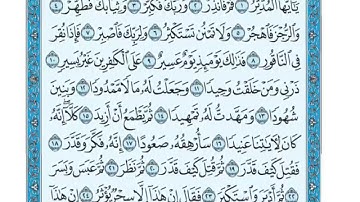 يَٰٓأَيُّهَا ٱلْمُدَّثِّرُ ١ قُمْ فَأَنذِرْ ٢ وَرَبَّكَ فَكَبِّرْ ٣ وَثِيَابَكَ فَطَهِّرْ ٤
وَٱلرُّجْزَ فَٱهْجُرْ ٥ وَلَا تَمْنُن تَسْتَكْثِرُ ٦ وَلِرَبِّكَ فَٱصْبِرْ ٧ فَإِذَا نُقِرَ
فِى ٱلنَّاقُورِ ٨ فَذَٰلِكَ يَوْمَئِذٍ يَوْمٌ عَسِيرٌ ٩ عَلَى ٱلْكَٰفِرِينَ غَيْرُ يَسِيرٍ ١٠
ذَرْنِى وَمَنْ خَلَقْتُ وَحِيدًا ١١ وَجَعَلْتُ لَهُۥ مَالًا مَّمْدُودًا ١٢ وَبَنِينَ
شُهُودًا ١٣ وَمَهَّدتُّ لَهُۥ تَمْهِيدًا ١٤ ثُمَّ يَطْمَعُ أَنْ أَزِيدَ ١٥ كَلَّآ إِنَّهُۥ
كَانَ لِءَايَٰتِنَا عَنِيدًا ١٦ سَأُرْهِقُهُۥ صَعُودًا ١٧ إِنَّهُۥ فَكَّرَ وَقَدَّرَ ١٨
فَقُتِلَ كَيْفَ قَدَّرَ ١٩ ثُمَّ قُتِلَ كَيْفَ قَدَّرَ ٢٠ ثُمَّ نَظَرَ ٢١ ثُمَّ عَبَسَ وَبَسَرَ
٢٢ ثُمَّ أَدْبَرَ وَٱسْتَكْبَرَ ٢٣ فَقَالَ إِنْ هَٰذَآ إِلَّا سِحْرٌ يُؤْثَرُ ٢٤ إِنْ هَٰذَآ